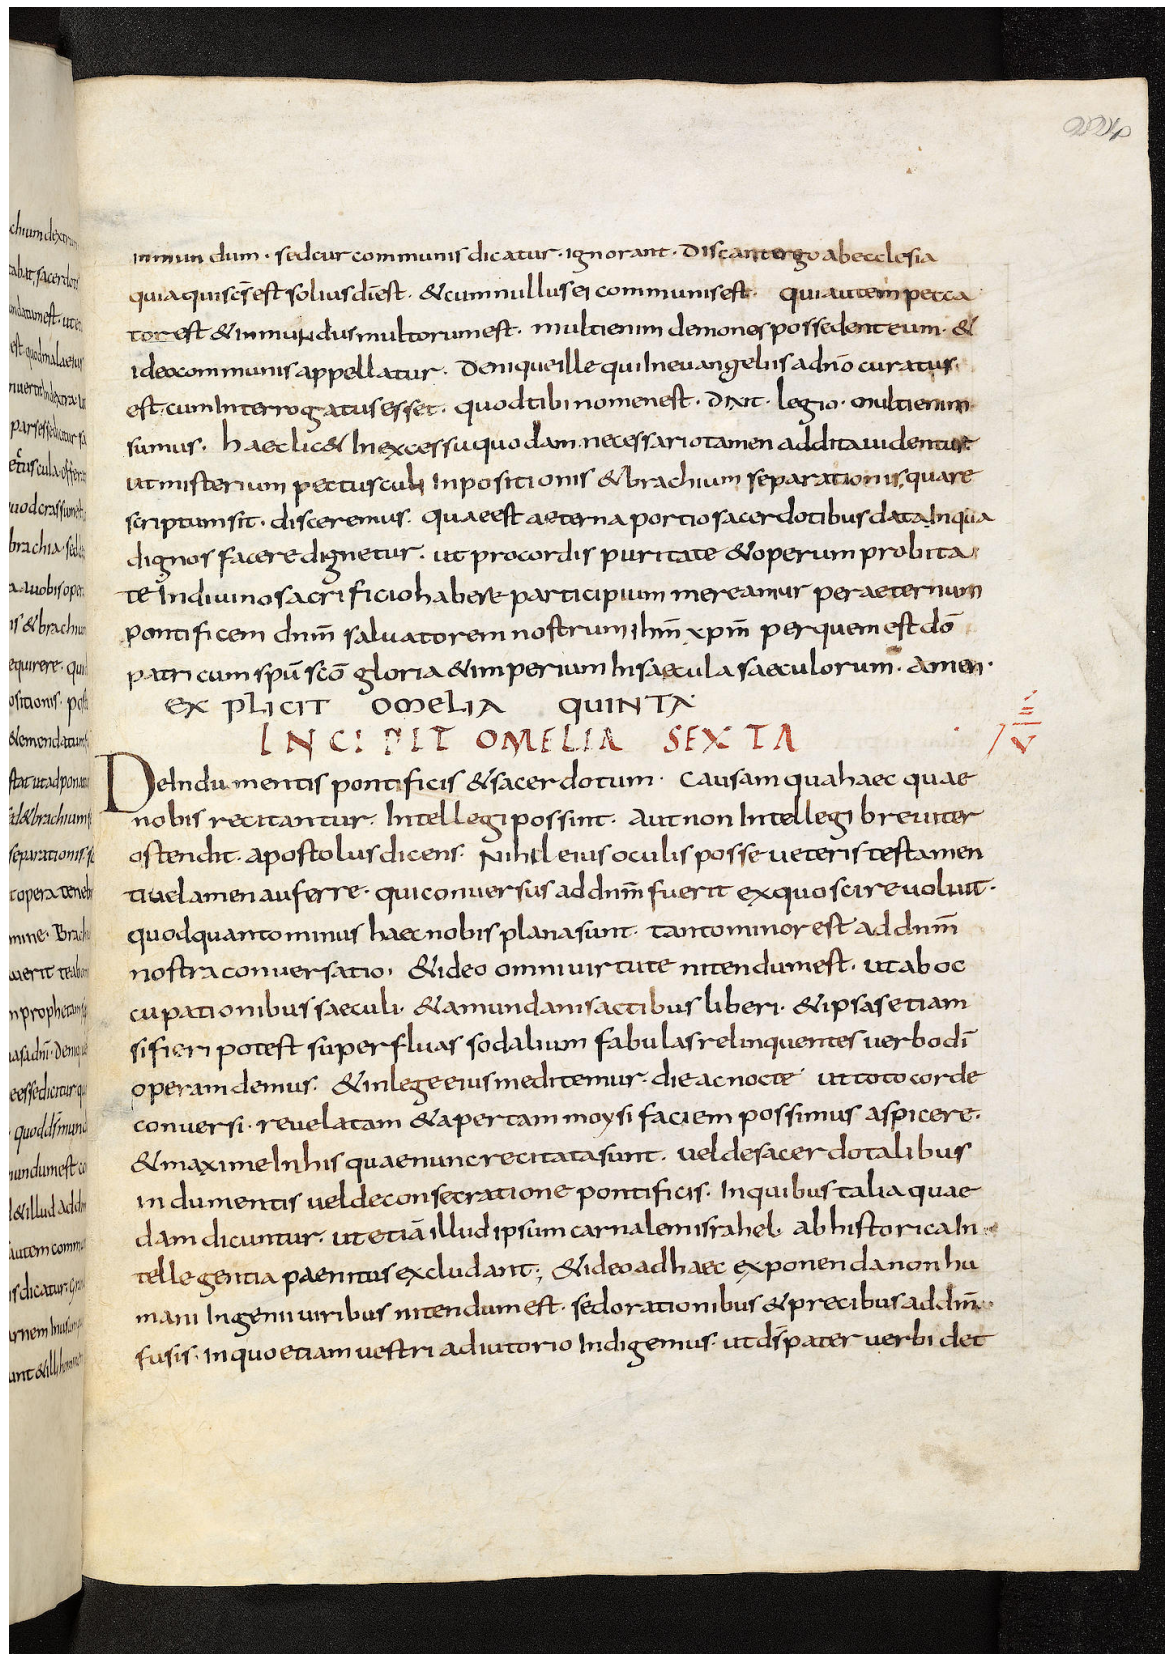 224
inmundum · sed cur communis dicatur · ignorant · Discant ergo ab ecclesia
quia qui scs̄ est solius dī est · & cum nullus ei communis est · qui autem pecca
tor est & inmundus multorum est · multi enim demones possedent eum · &
ideo communis appellatur · Denique ille qui In evangeliis a dn̄o curatus
est · cum Interrogatus esset · quod tibi nomen est · Dixit · legio · multi enim
sumus · haec lic& In excessu quodam necessario tamen addita videntur
ut misterium pectusculi Inpositionis & brachium separationis quare
scriptum sit · disceremus · quae est aeterna portio sacerdotibus data In qua
dignos facere dignetur · ut pro cordis puritate & operum probita
te In divino sacrificio habere participium mereamur per aeternum
pontificem dnm̄ salvatorem nostrum ihm̄ xpm̄ per quem est dō
patri cum spū scō gloria & imperium In saecula saeculorum · amen ·
EXPLICIT OMELIA QUINTA
INCIPIT OMELIA SEXTA
De Indumentis pontificis & sacerdotum · Causam qua haec quae
nobis recitantur · Intellegi possint · aut non Intellegi breviter
ostendit · apostolus dicens · Nihil eius oculis posse veteris testamen
ti velamen auferre · qui conversus ad dnm̄ fuerit ex quo scire voluit ·
quod quanto minus haec nobis plana sunt · tanto minor est ad dnm̄
nostra conversatio · & ideo omni virtute nitendum est · ut ab oc
cupationibus saeculi · & a mundanis actibus liberi · & ipsas etiam
si fieri potest superfluas sodalium fabulas relinquentes verbo dī
operam demus · & in lege eius meditemur · die ac nocte ut toto corde
conversi · revelatam & apertam moysi faciem possimus aspicere ·
& maxime In his quae nunc recitata sunt · vel de sacerdotalibus
indumentis vel de consecratione pontificis · In quibus talia quae
dam dicuntur · ut etiā illud ipsum carnalem israhel · ab historica In
tellegentia paenitus excludant ; & ideo ad haec exponenda non hu
mani Ingenii viribus nitendum est · sed orationibus & precibus ad dm̄
fusis · in quo etiam vestri adiutorio Indigemus · ut ds̄ pater verbi det